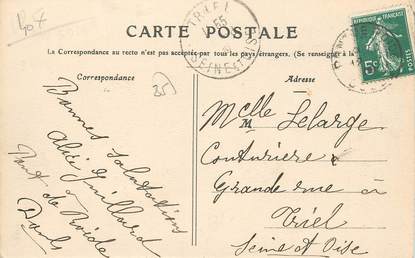 407
CARTE POSTALE
La Correspondance au recto n'est pas acceptée par tous les pays étrangers. (Se renseigner à la
Correspondance
Adresse
TRIEL
SEINE-ET-OISE
REPUBLIQUE FRANÇAISE
5c
25
Bonnes Salutations
Alice Guillard
Pont de Roide
Doubs
Mlle Lelarge
Couturière
Grande rue à
Triel
Seine et Oise